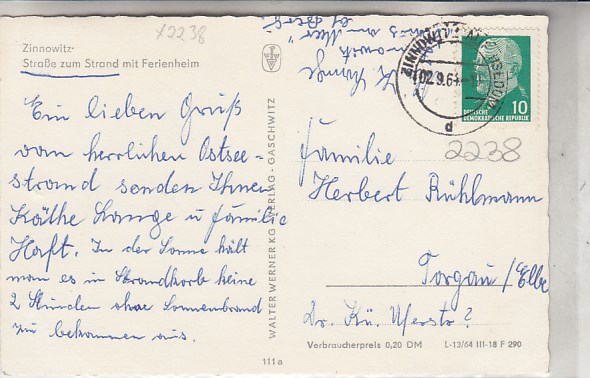 x2238
Zinnowitz-
Straße zum Strand mit Ferienheim
Ein lieben Gruß
vom herrlichen Ostsee-
strand senden Ihnen
Käthe Lange u Familie
Haft. In der Sonne hält
man es in Strandkorb keine
2 Stunden ohne Sonnenbrand
zu bekommen aus.
111a
WALTER WERNER KG VERLAG - GASCHWITZ
K Lange
Zinnowitz
am Meer"
02.9.64
d
10
DEUTSCHE
DEMOKRATISCHE REPUBLIK
2238
Familie
Herbert Rühlmann
Torgau/Elbe
Dr. Kü. Str ?
Verbraucherpreis 0,20 DM L-13/64 III-18 F 290